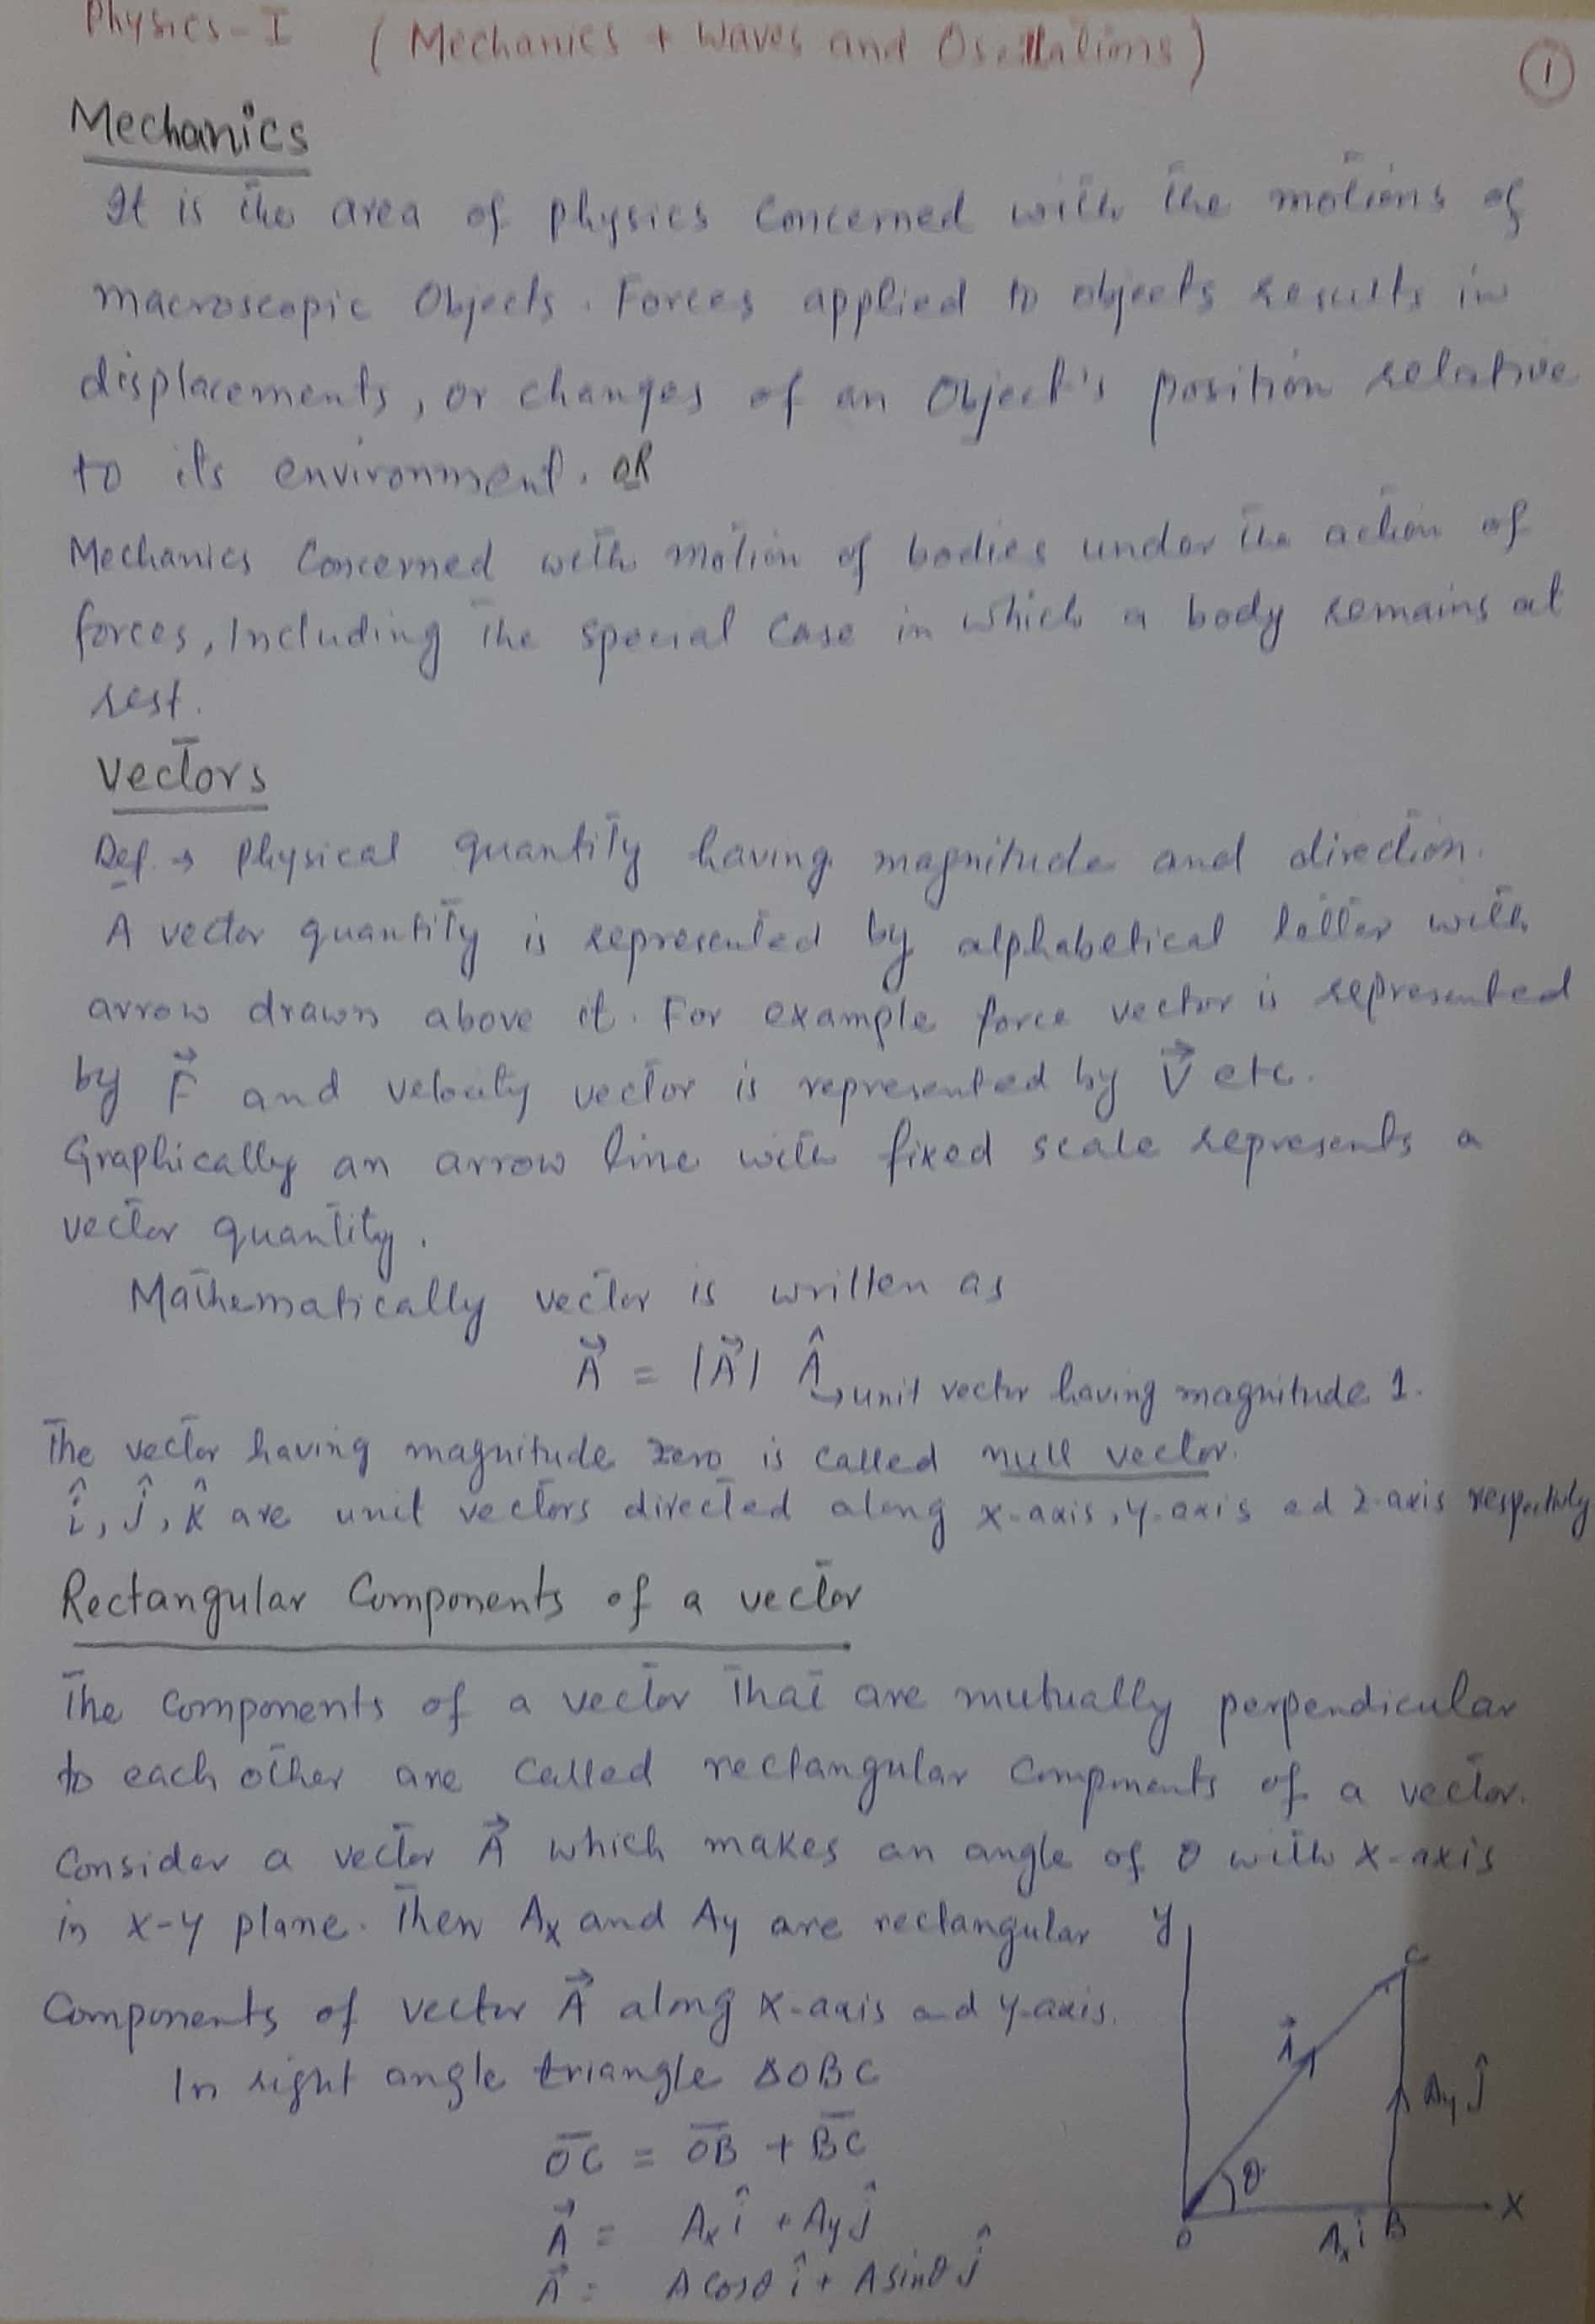 Physics-I (Mechanics + Waves and Oscillations)
1
Mechanics
It is the area of physics concerned with the motions of
macroscopic Objects. Forces applied to objects results in
displacements, or changes of an Object's position relative
to its environment. OR
Mechanics Concerned with motion of bodies under the action of
forces, Including the special case in which a body remains at
rest.
Vectors
Def. → Physical quantity having magnitude and direction.
A vector quantity is represented by alphabetical letter with
arrow drawn above it. For example force vector is represented
by F⃗ and velocity vector is represented by V⃗ etc.
Graphically an arrow line with fixed scale represents a
vector quantity.
Mathematically vector is written as
A⃗ = |A⃗| Â ↳ unit vector having magnitude 1.
The vector having magnitude zero is called null vector.
î, ĵ, k̂ are unit vectors directed along x-axis, y-axis ad z-axis respectively
Rectangular Components of a vector
The components of a vector that are mutually perpendicular
to each other are called rectangular components of a vector.
Consider a vector A⃗ which makes an angle of θ with x-axis
in x-y plane. Then Ax and Ay are rectangular
Components of vector A⃗ along x-axis and y-axis.
In right angle triangle ΔOBC
O̅C̅ = O̅B̅ + B̅C̅
A⃗ = Ax î + Ay ĵ
A⃗ = A cosθ î + A sinθ ĵ
y
C
A⃗
Ay ĵ
θ
x
O
Ax î
B